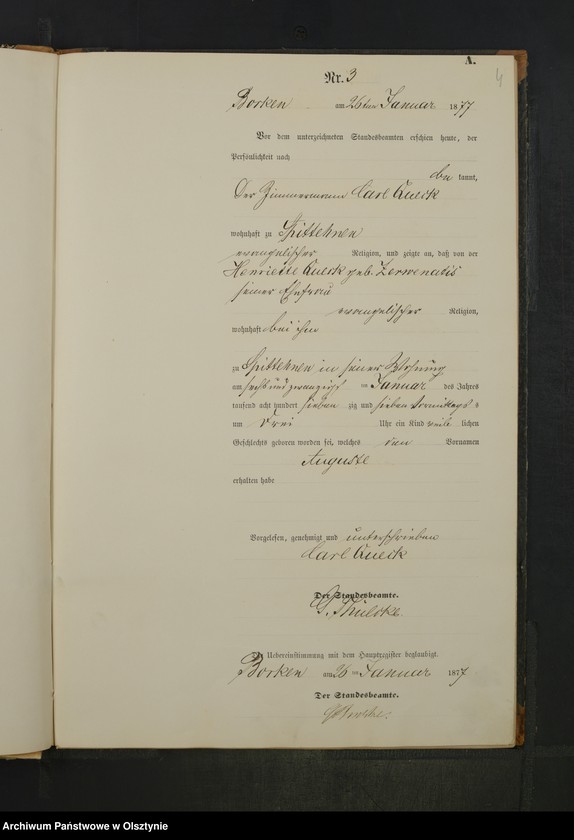 A.
4
Nr. 3
Borken am 26ten Januar 1877
Vor dem unterzeichneten Standesbeamten erschien heute, der
Persönlichkeit nach
be kannt,
Der Zimmermann Carl Queck
wohnhaft zu Spittehnen
evangelischer Religion, und zeigte an, daß von der
Henriette Queck geb.
seiner Ehefrau
evangelischer Religion,
wohnhaft bei ihm
zu Spittehnen in seiner Wohnung
am sechsundzwanzigst en Januar des Jahres
tausend acht hundert sieben zig und sieben Vormittags
um drei Uhr ein Kind weib lichen
Geschlechts geboren worden sei, welches den Vornamen
Auguste
erhalten habe
Vorgelesen, genehmigt und unterschrieben
Carl Queck
Der Standesbeamte.
Die Uebereinstimmung mit dem Hauptregister beglaubigt.
Borken am 26 ten Januar 1877
Der Standesbeamte.
Archiwum Państwowe w Olsztynie